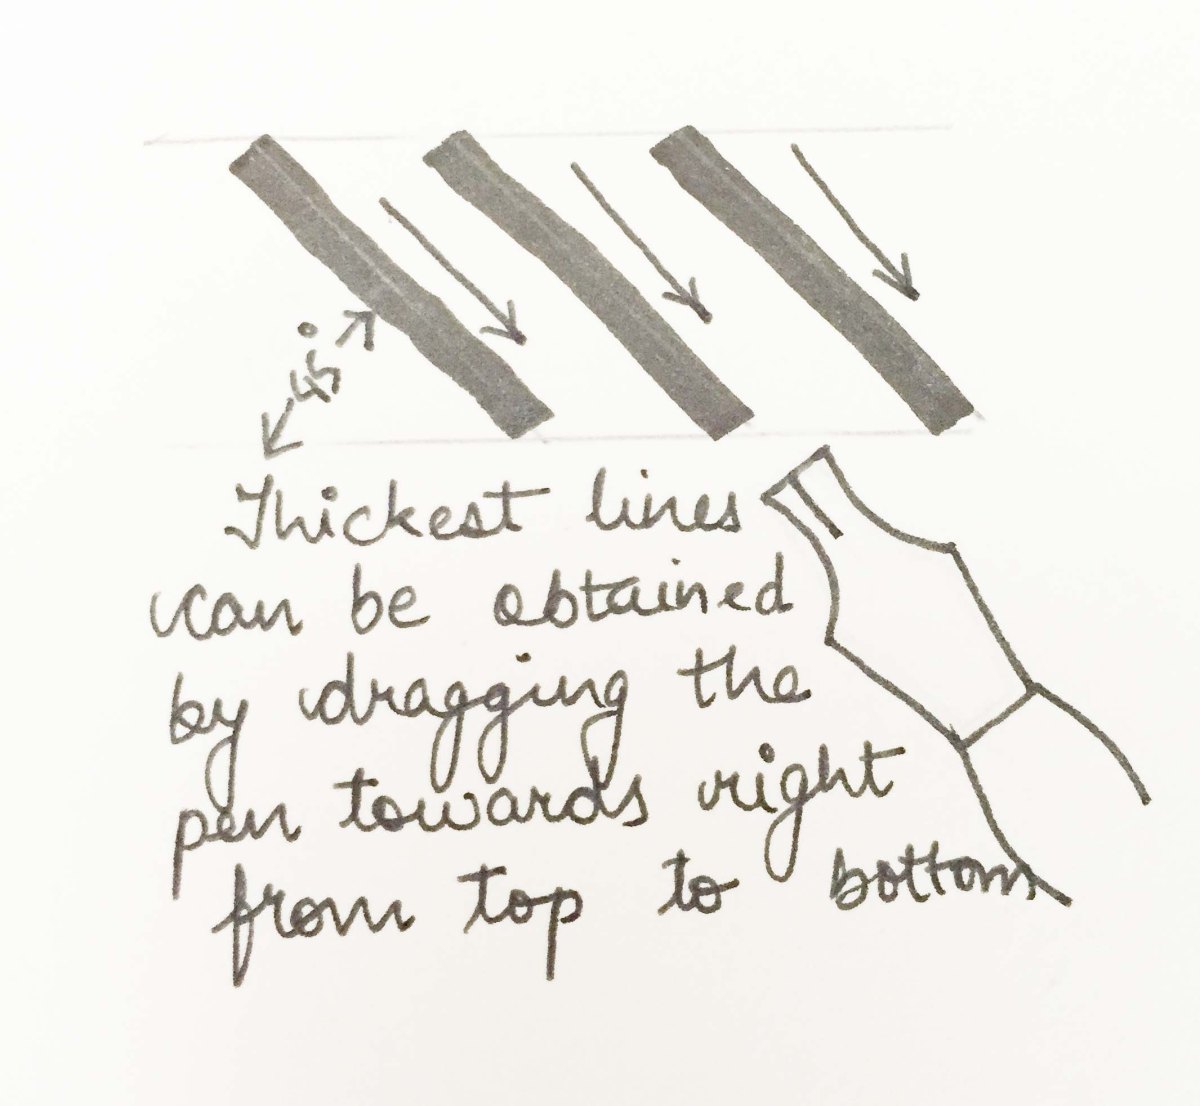 45°
Thickest lines
can be obtained
by dragging the
pen towards right
from top to bottom